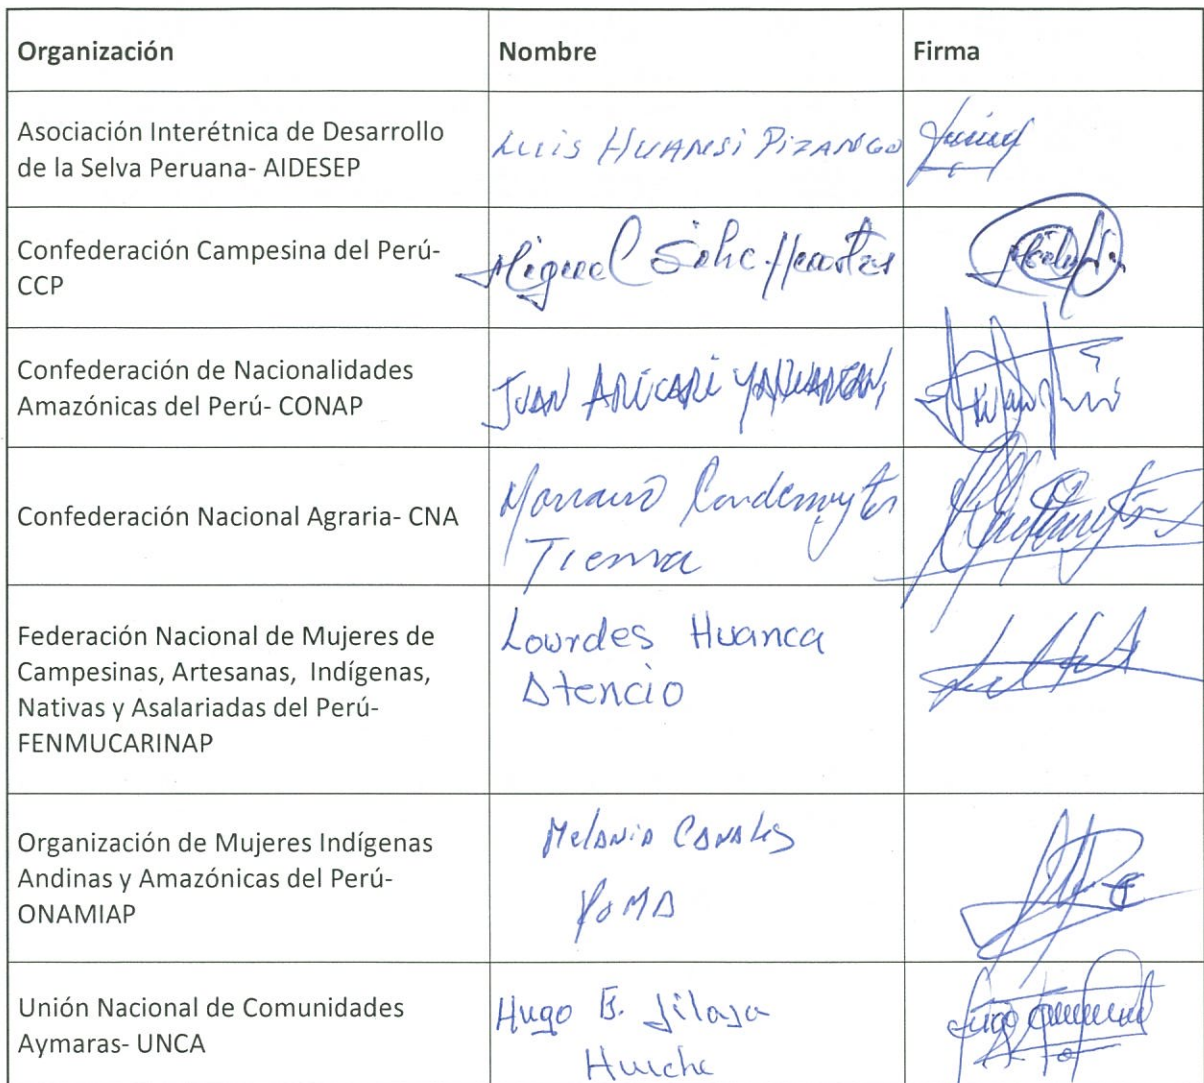 Organización Nombre Firma
Asociación Interétnica de Desarrollo
de la Selva Peruana- AIDESEP
Luis Huansi Pizango
Confederación Campesina del Perú-
CCP
Miguel
Confederación de Nacionalidades
Amazónicas del Perú- CONAP
JUAN
Confederación Nacional Agraria- CNA
Federación Nacional de Mujeres de
Campesinas, Artesanas, Indígenas,
Nativas y Asalariadas del Perú-
FENMUCARINAP
Lourdes Huanca
Atencio
Organización de Mujeres Indígenas
Andinas y Amazónicas del Perú-
ONAMIAP
Melania Canales
Poma
Unión Nacional de Comunidades
Aymaras- UNCA
Hugo E. Jilaja
Huiche